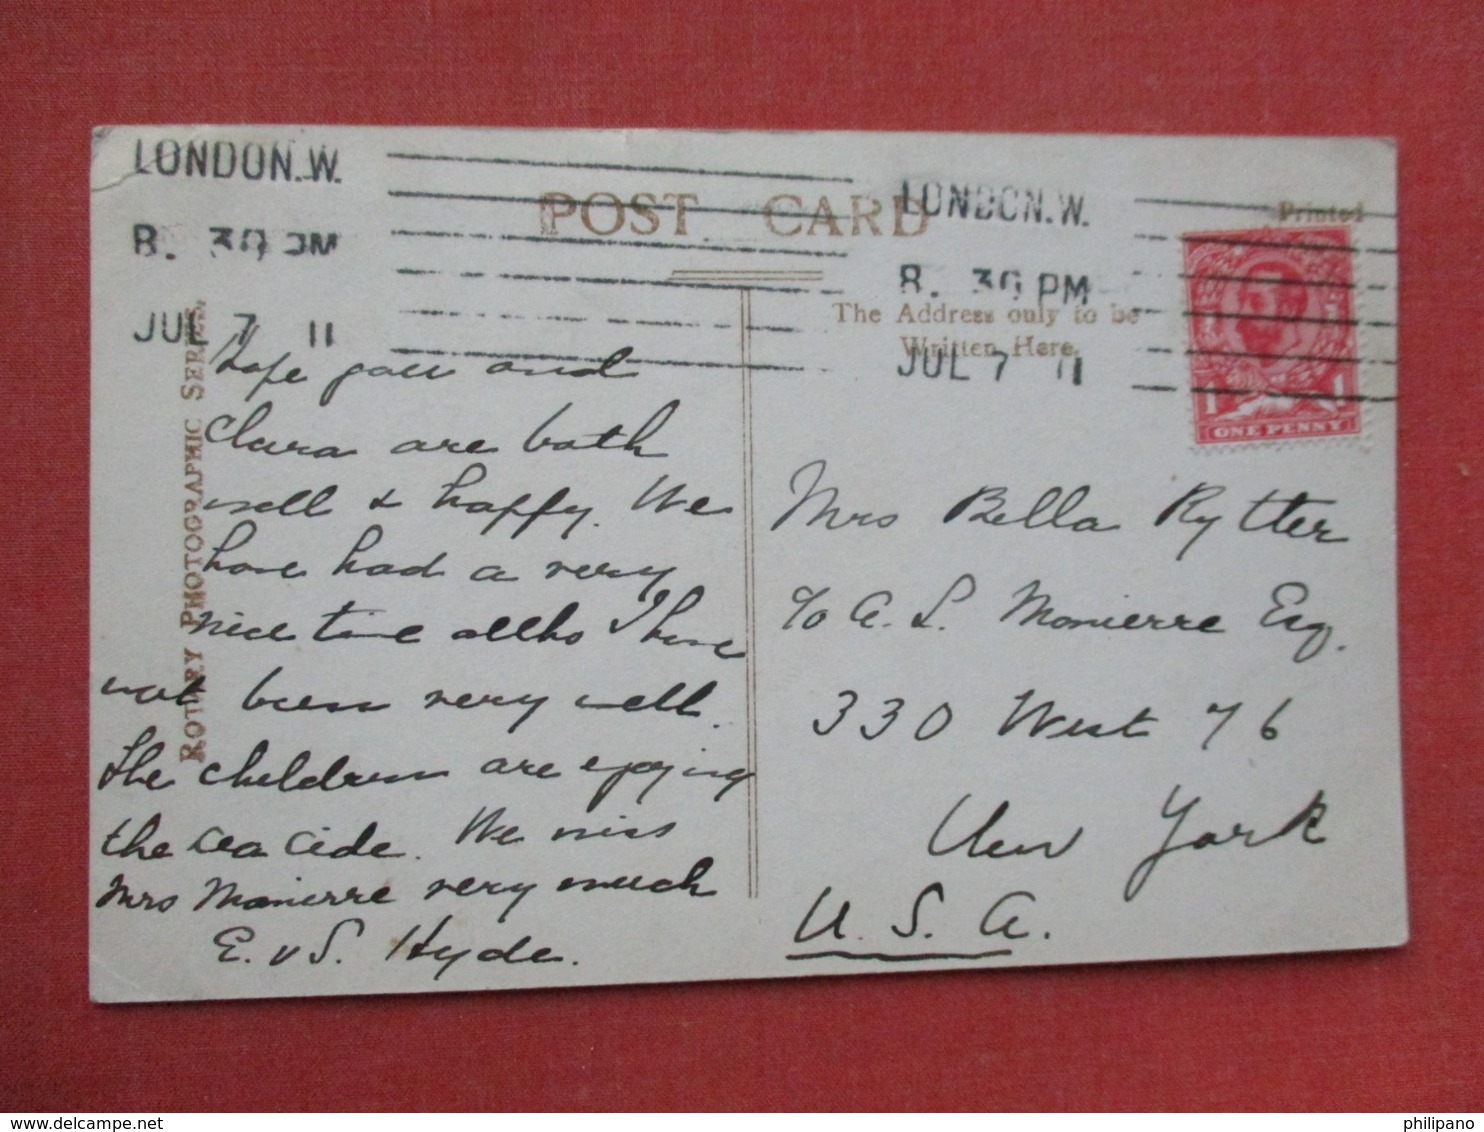 LONDON.W.
8. 30 PM
JUL 7 11
POST CARD
LONDON.W.
8. 30 PM
JUL 7 11
Printed
The Address only to be
Written Here.
1 1
ONE PENNY
ROTARY PHOTOGRAPHIC SERIES.
Hope you and
Clara are both
well & happy. We
have had a very
nice time altho I have
not been very well.
The children are enjoying
the sea side. We miss
Mrs Monierre very much
E. v S. Hyde.
Mrs Bella Rytter
c/o A. L. Monierre Esq.
330 West 76
New York
U. S. A.
philipano
delcampe.net